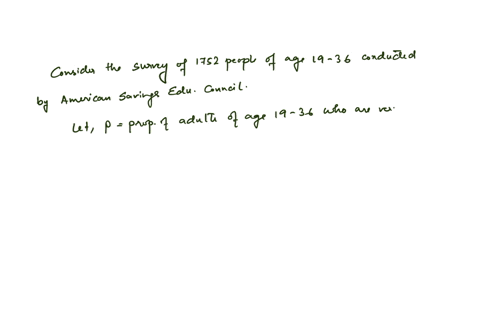 Consider the survey of 1752 peopl of age 19-36 conducted
by American Savings Edu. Council.
Let, p = prop. of adults of age 19-36 who are ver